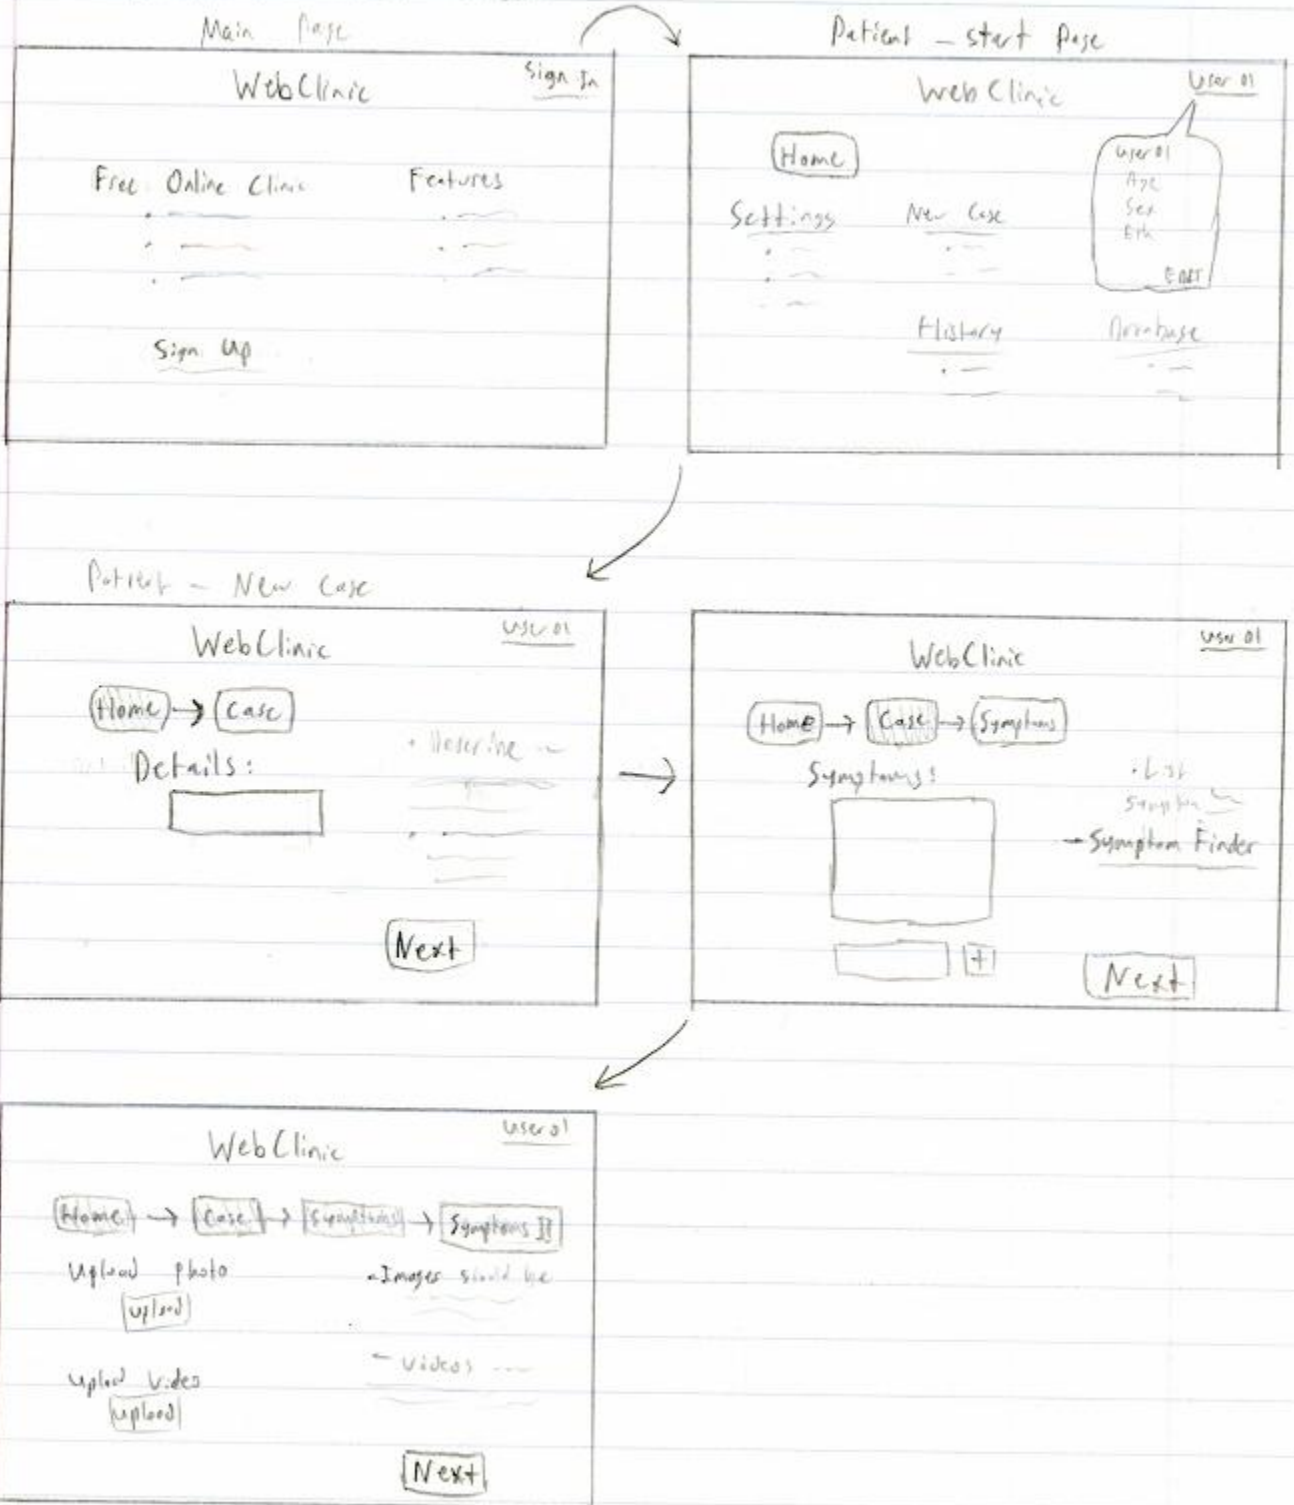 Main Page
WebClinic
Sign In
Free Online Clinic
Features
Sign Up
Patient - start Page
Web Clinic
User 01
Home
user 01
Age
Sex
Eth
EDIT
Settings
New Case
History
Patient - New Case
WebClinic
User 01
Home → Case
Details:
• Describe
Next
WebClinic
User 01
Home → Case → Symptoms
Symptoms:
• List
Symptom
Symptom Finder
+
Next
WebClinic
User 01
Home → Case → Symptoms → Symptoms II
Upload Photo
Upload
- Images should be
Upload Video
Upload
- Videos
Next